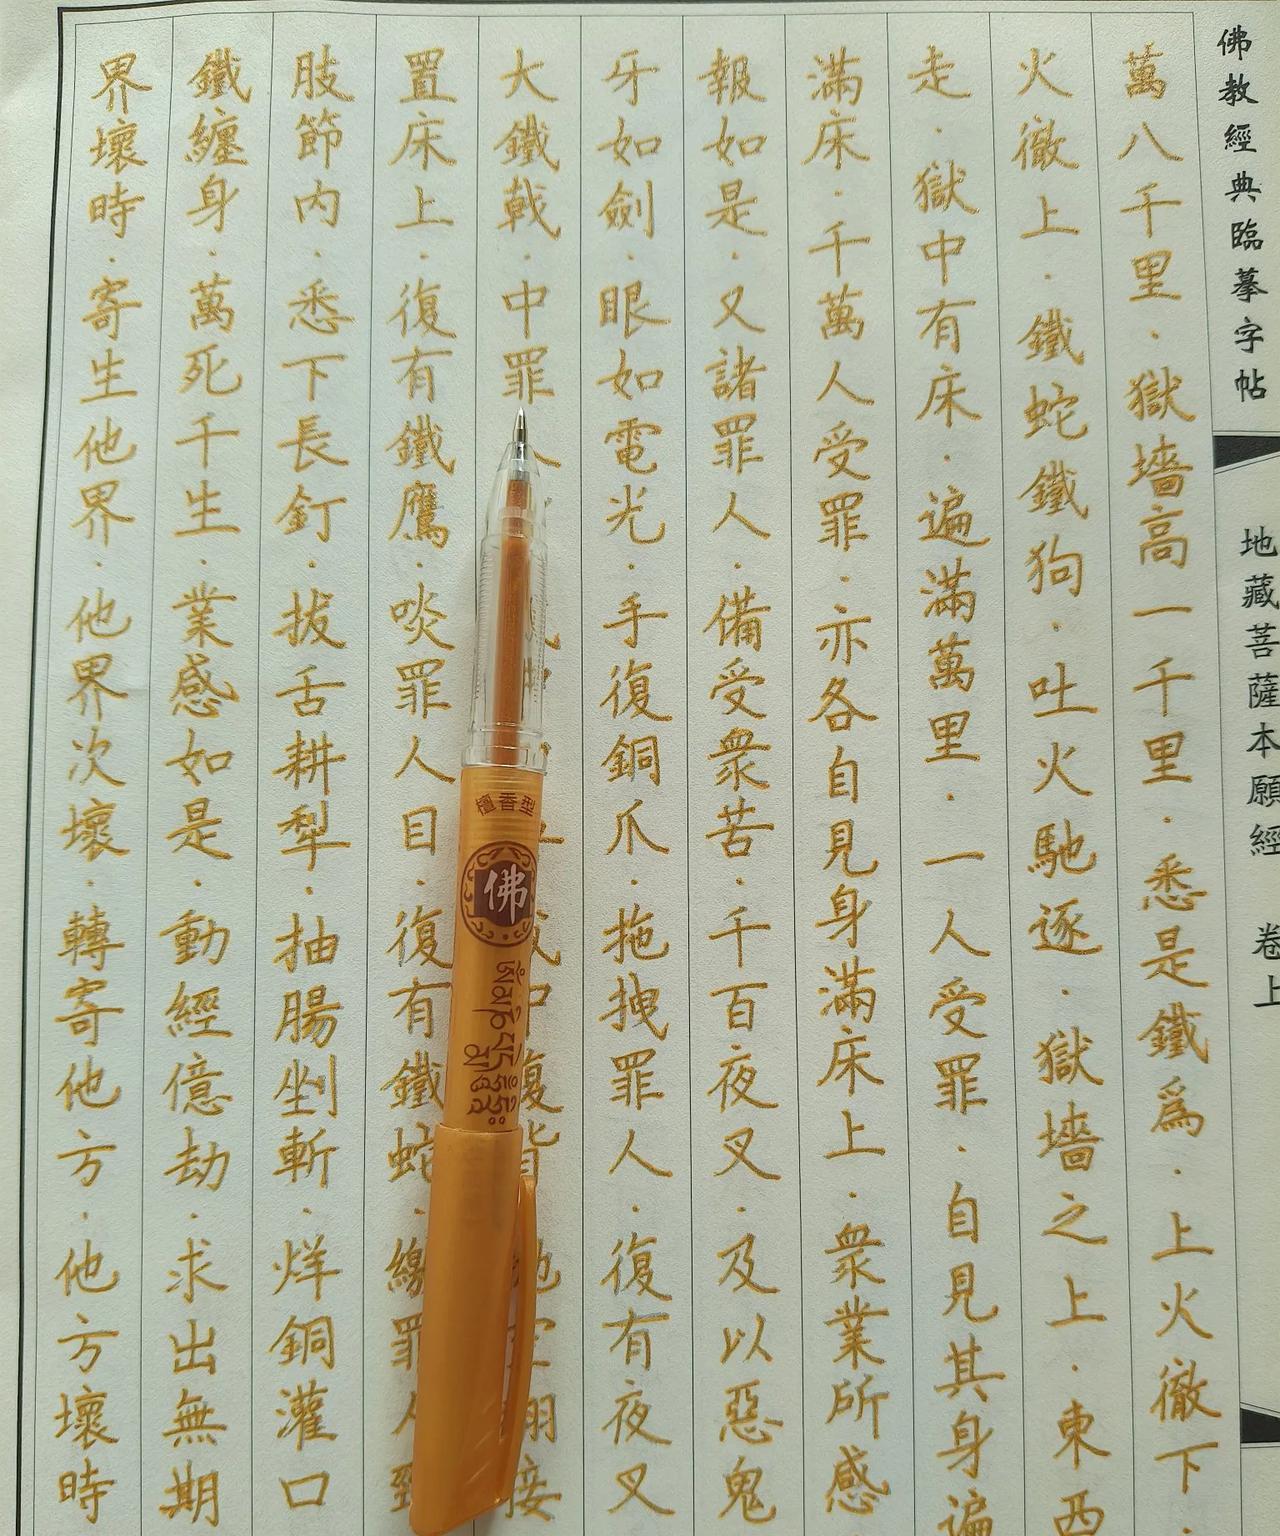 佛教經典臨摹字帖
地藏菩薩本願經 卷上
萬八千里．獄墻高一千里．悉是鐵爲．上火徹下．
火徹上．鐵蛇鐵狗．吐火馳逐．獄墻之上．東西
走．獄中有床．遍滿萬里．一人受罪．自見其身遍
滿床．千萬人受罪．亦各自見身滿床上．衆業所感
報如是．又諸罪人．備受衆苦．千百夜叉．及以惡鬼
牙如劍．眼如電光．手復銅爪．拖拽罪人．復有夜叉
大鐵戟．中罪 接
置床上．復有鐵鷹．啖罪人目．復有鐵蛇
肢節內．悉下長釘．拔舌耕犁．抽腸剉斬．烊銅灌口
鐵纏身．萬死千生．業感如是．動經億劫．求出無期
界壞時．寄生他界．他界次壞．轉寄他方．他方壞時
檀香型
佛